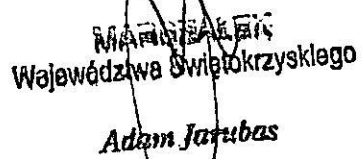 MARSZAŁEK
Województwa Świętokrzyskiego
Adam Jarubas